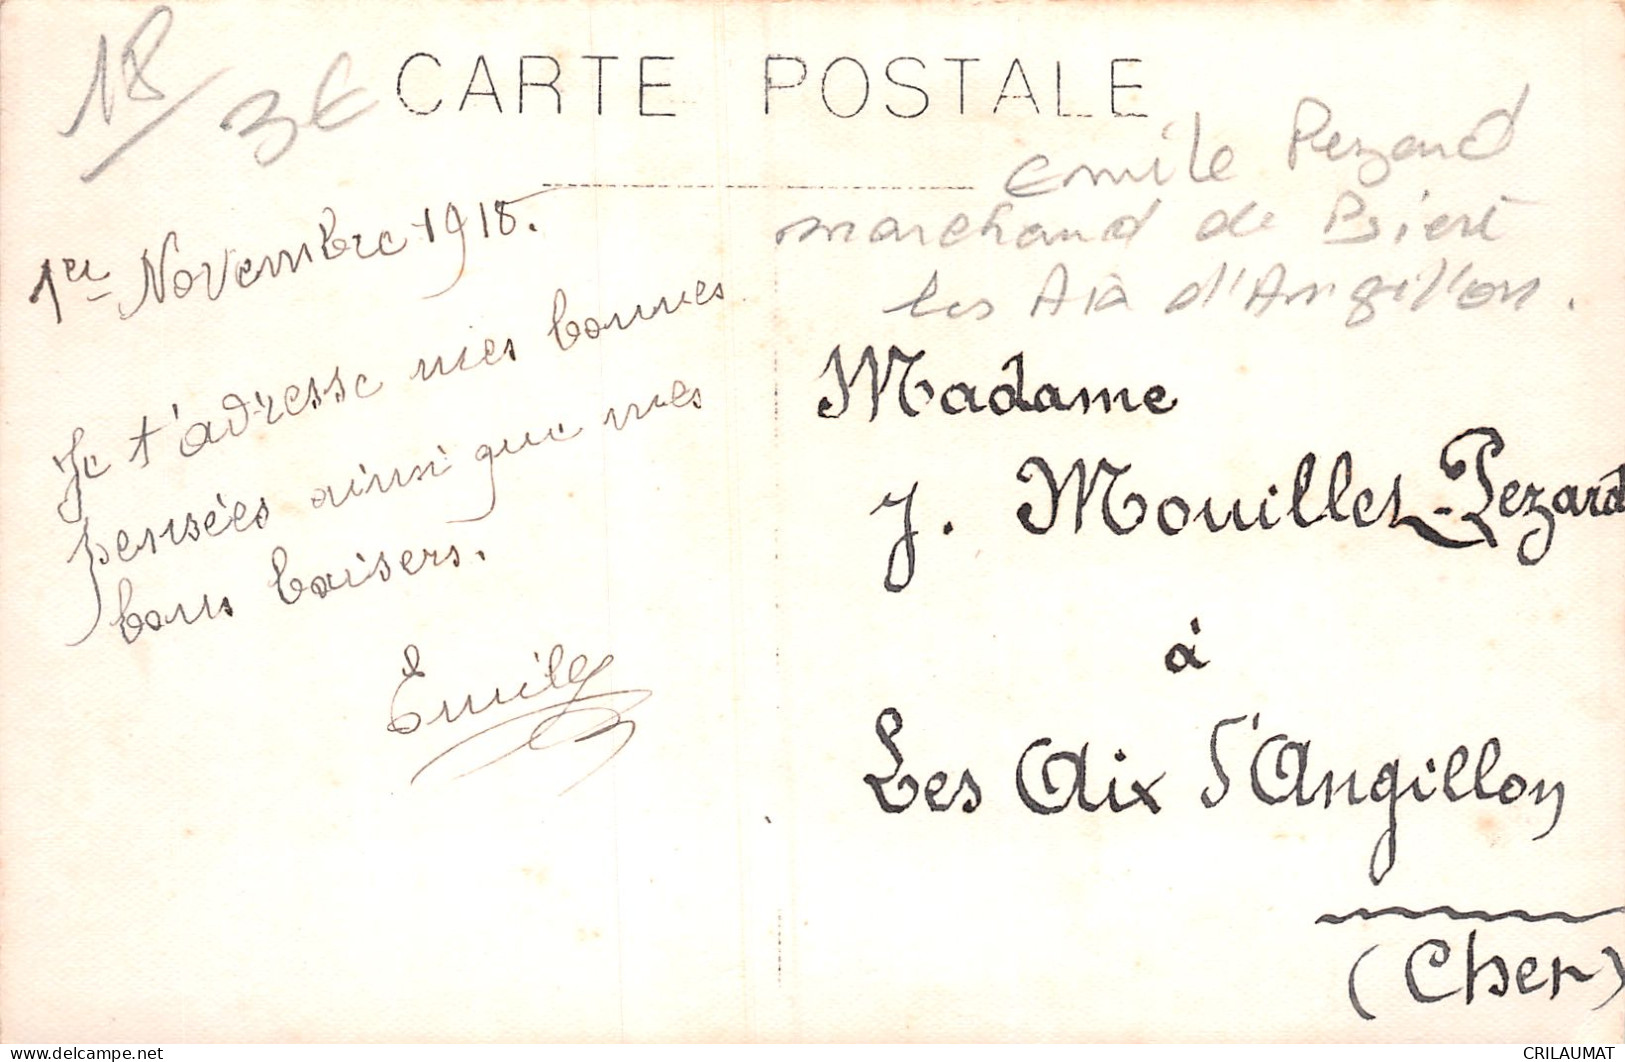 18
3€
CARTE POSTALE
Emile Pezard
marchand de Bierè
les Aix d'Angillon.
1er Novembre 1918.
Je t'adresse mes bonnes
pensées ainsi que mes
bons baisers.
Emile
Madame
J. Mouillet-Pezard
à
Les Aix d'Angillon
(Cher)
delcampe.net
CRILAUMAT